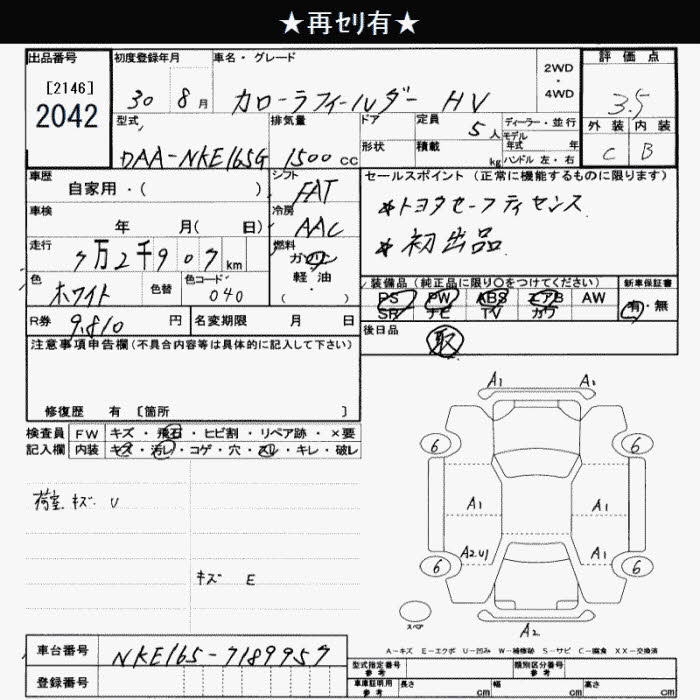 ★再ｾﾘ有★
出品番号
[2146]
2042
初度登録年月
30 8月
車名・グレード
カローラフィールダー HV
2WD・4WD
評価点
3.5
外装 内装
C B
型式
DAA-NKE165G
排気量
1500 CC
ドア
形状
定員
5人
積載
kg
ディーラー・並行
モデル年式 年
ハンドル 左・右
車歴
自家用・( )
シフト
FAT
車検
年 月( 日)
冷房
AAC
走行
7万2千907km
燃料
ガソリン
軽・油
( )
色
ホワイト
色替
色コード
040
R券
9,810 円
名変期限 月 日
セールスポイント(正常に機能するものに限ります)
*トヨタセーフティセンス
*初出品
装備品(純正品に限り○をつけてください)
新車保証書
PS PW ABS エアB AW
SR ナビ TV カワ
有・無
後日品
取
注意事項申告欄(不具合内容等は具体的に記入して下さい)
修復歴 有 [箇所 ]
検査員 FW キズ・飛石・ヒビ割・リペア跡・×要
記入欄 内装 キズ・汚レ・コゲ・穴・スレ・キレ・破レ
荷室 キズ U
キズ E
A1 A2
6 6
A1 A1
A2.U1 A1
6 6
スペア
A2
A-キズ E-エクボ U-凹み W-補修跡 S-サビ C-腐食 XX-交換済
車台番号
NKE165-7189957
登録番号
型式指定番号 参考
類別区分番号 参考
車庫証明用 参考
長さ cm
幅 cm
高さ cm